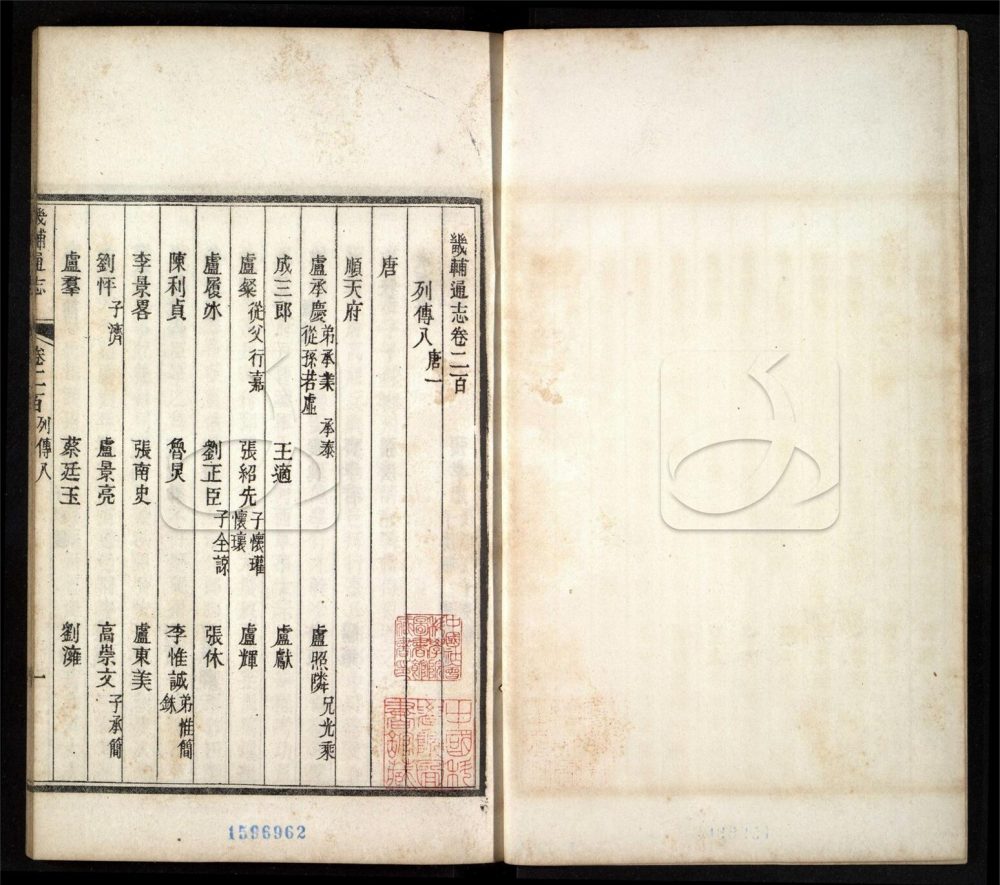 畿輔通志卷二百
列傳八 唐一
唐
順天府
盧承慶 弟承業 承泰 從孫若虛 盧照隣 兄光乘
成三郎 王適 盧獻
盧粲 從父行嘉 張紹先 子懷瓘 懷瓌 盧輝
盧履冰 劉正臣 子全諒 張休
陳利貞 魯炅 李惟誠 弟惟簡 銖
李景畧 張南史 盧東美
劉怦 子濟 盧景亮 高崇文 子承簡
盧羣 蔡廷玉 劉澭
畿輔通志 卷二百 列傳八 一
1596962